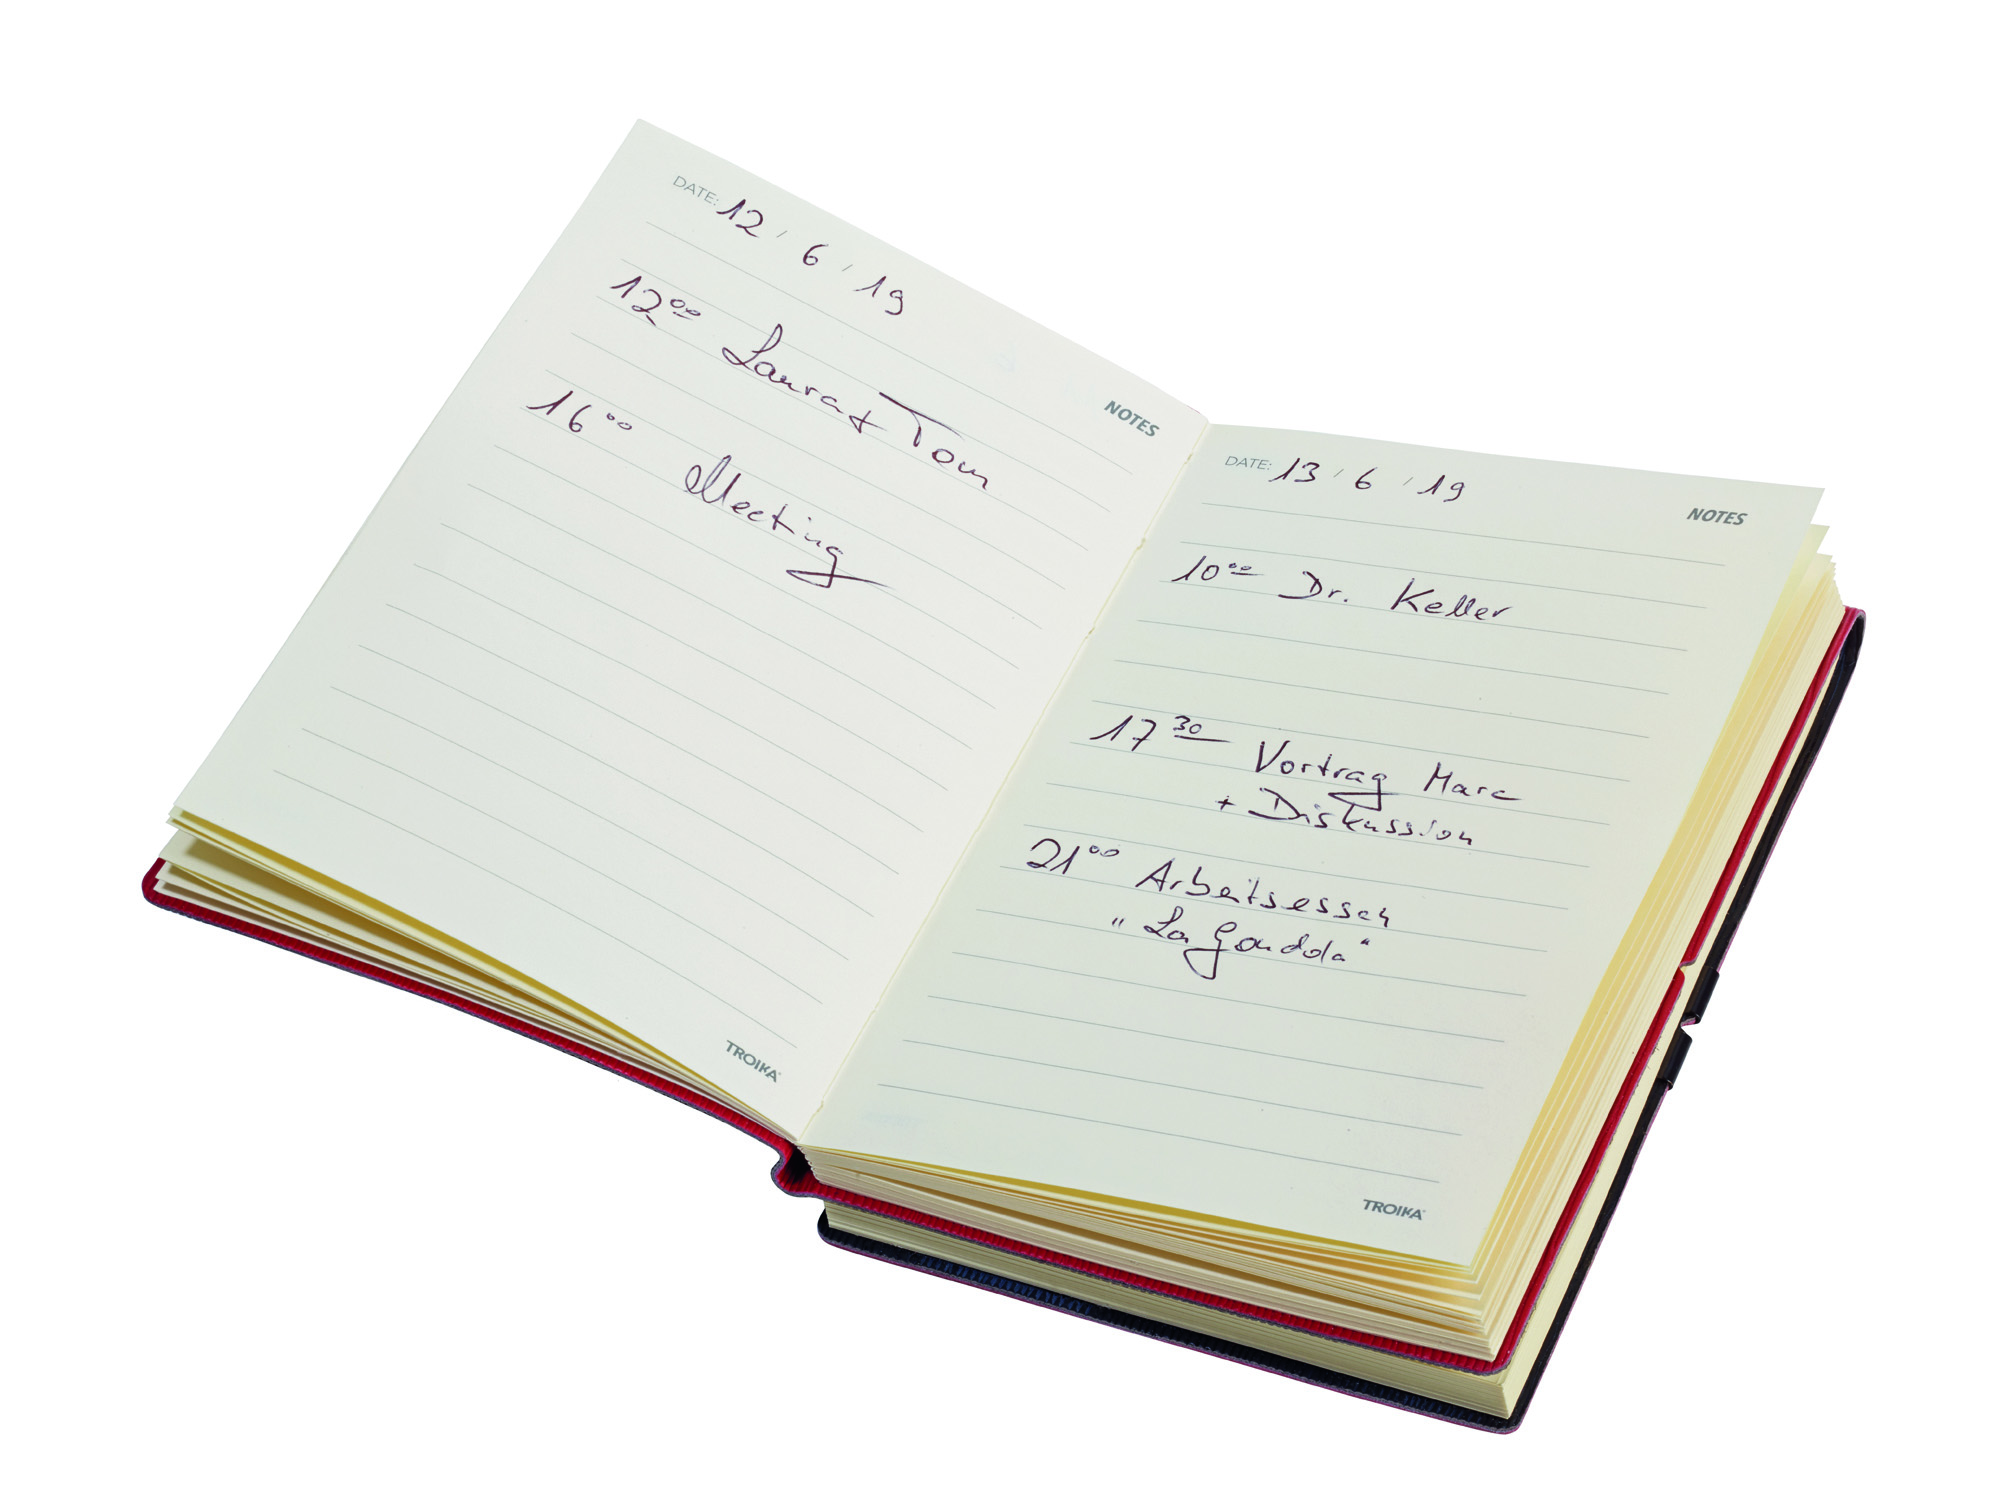 DATE: 12 / 6 / 19
NOTES
12⁰⁰ Laura + Tom
16⁰⁰ Meeting
TROIKA
DATE: 13 / 6 / 19
NOTES
10⁰⁰ Dr. Keller
17³⁰ Vortrag Marc
+ Diskussion
21⁰⁰ Arbeitsessen
„La Gondola“
TROIKA